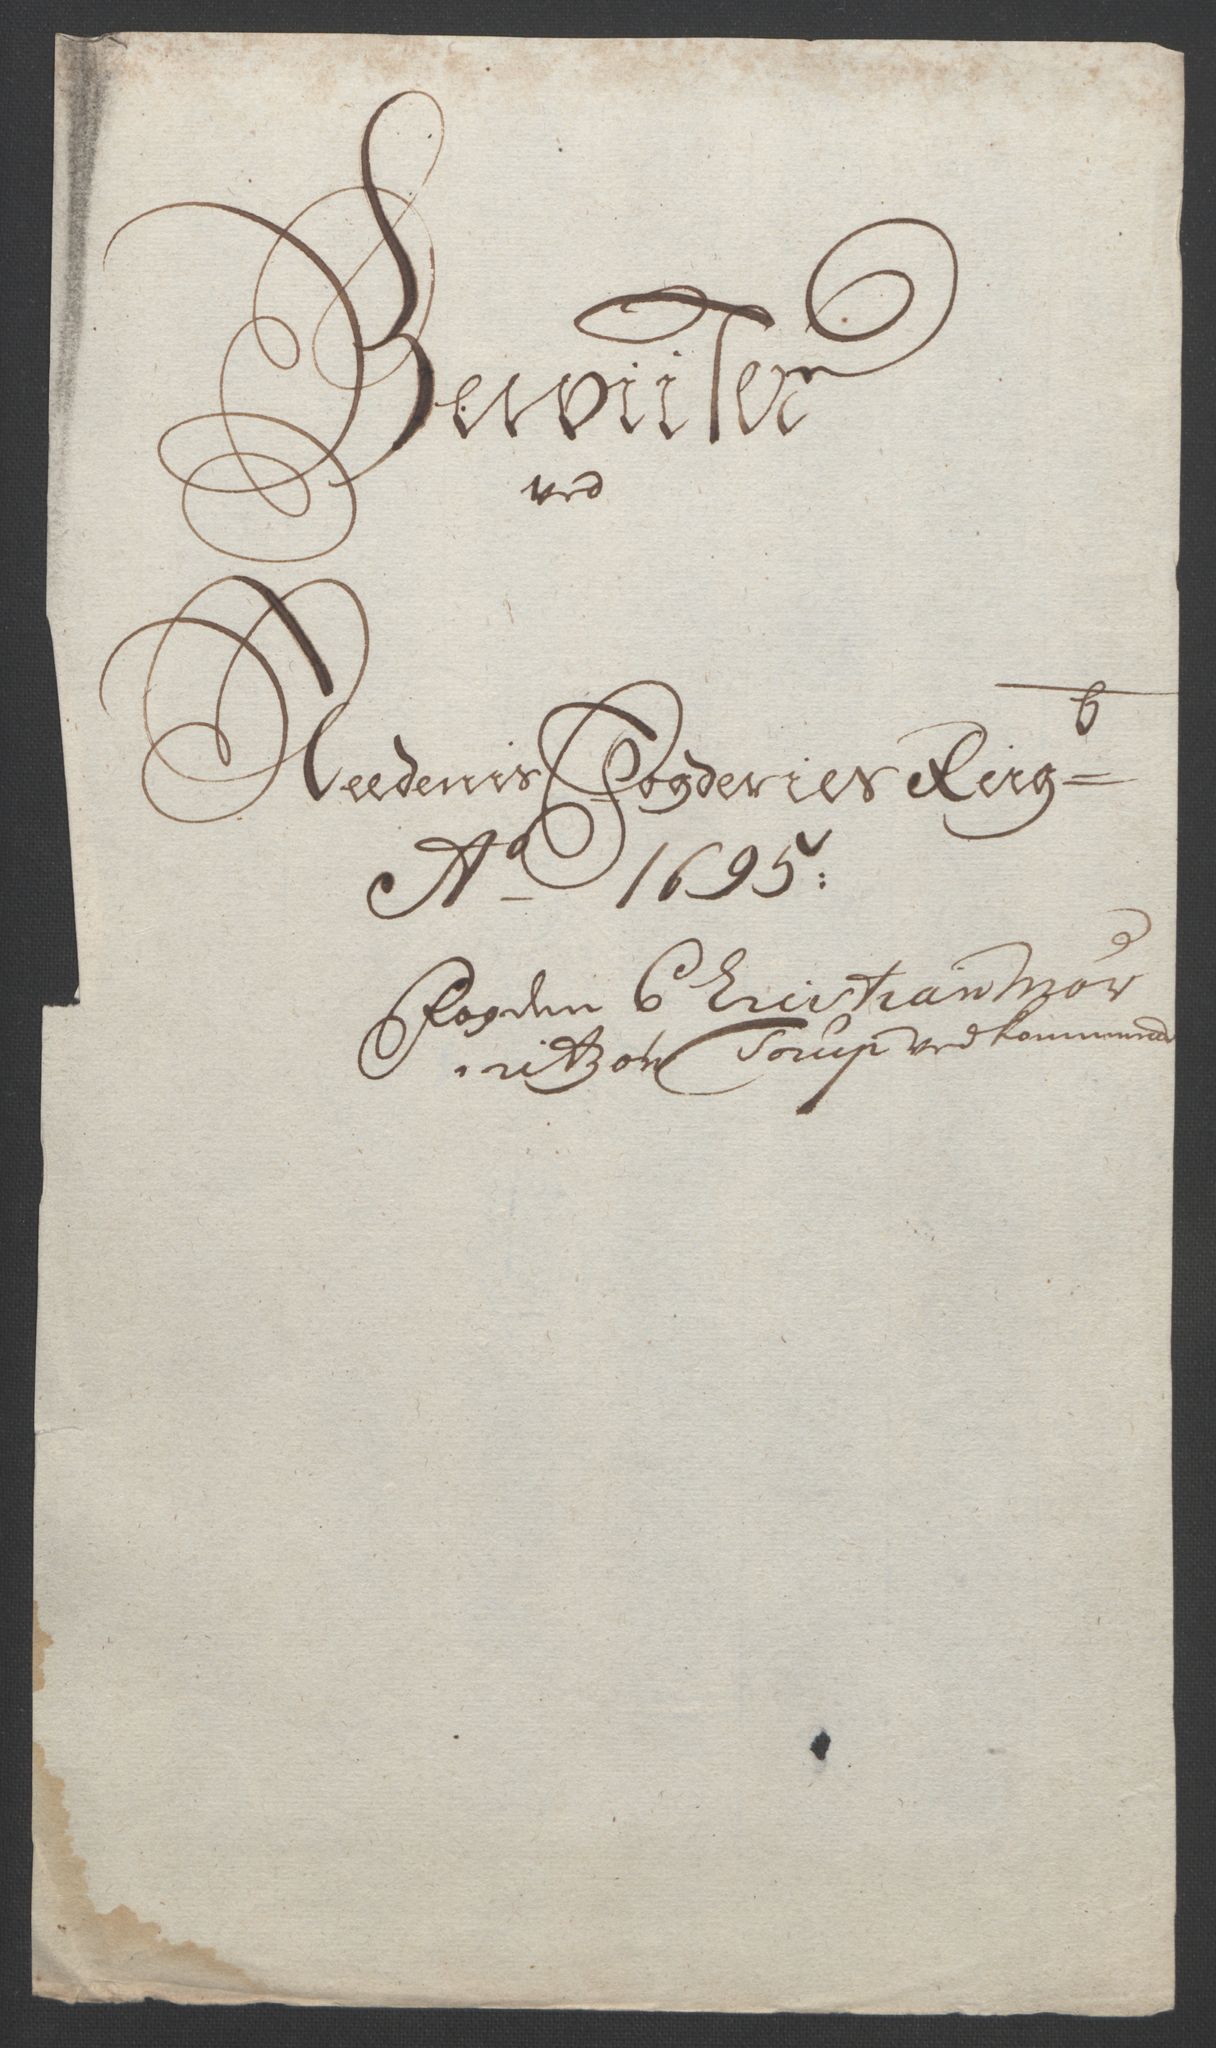 Beviiser
ved
Needenis Fogderies Reig=
b
Ao 1695:
Fogden Christian Mør
ritzøn Torup vedkommende